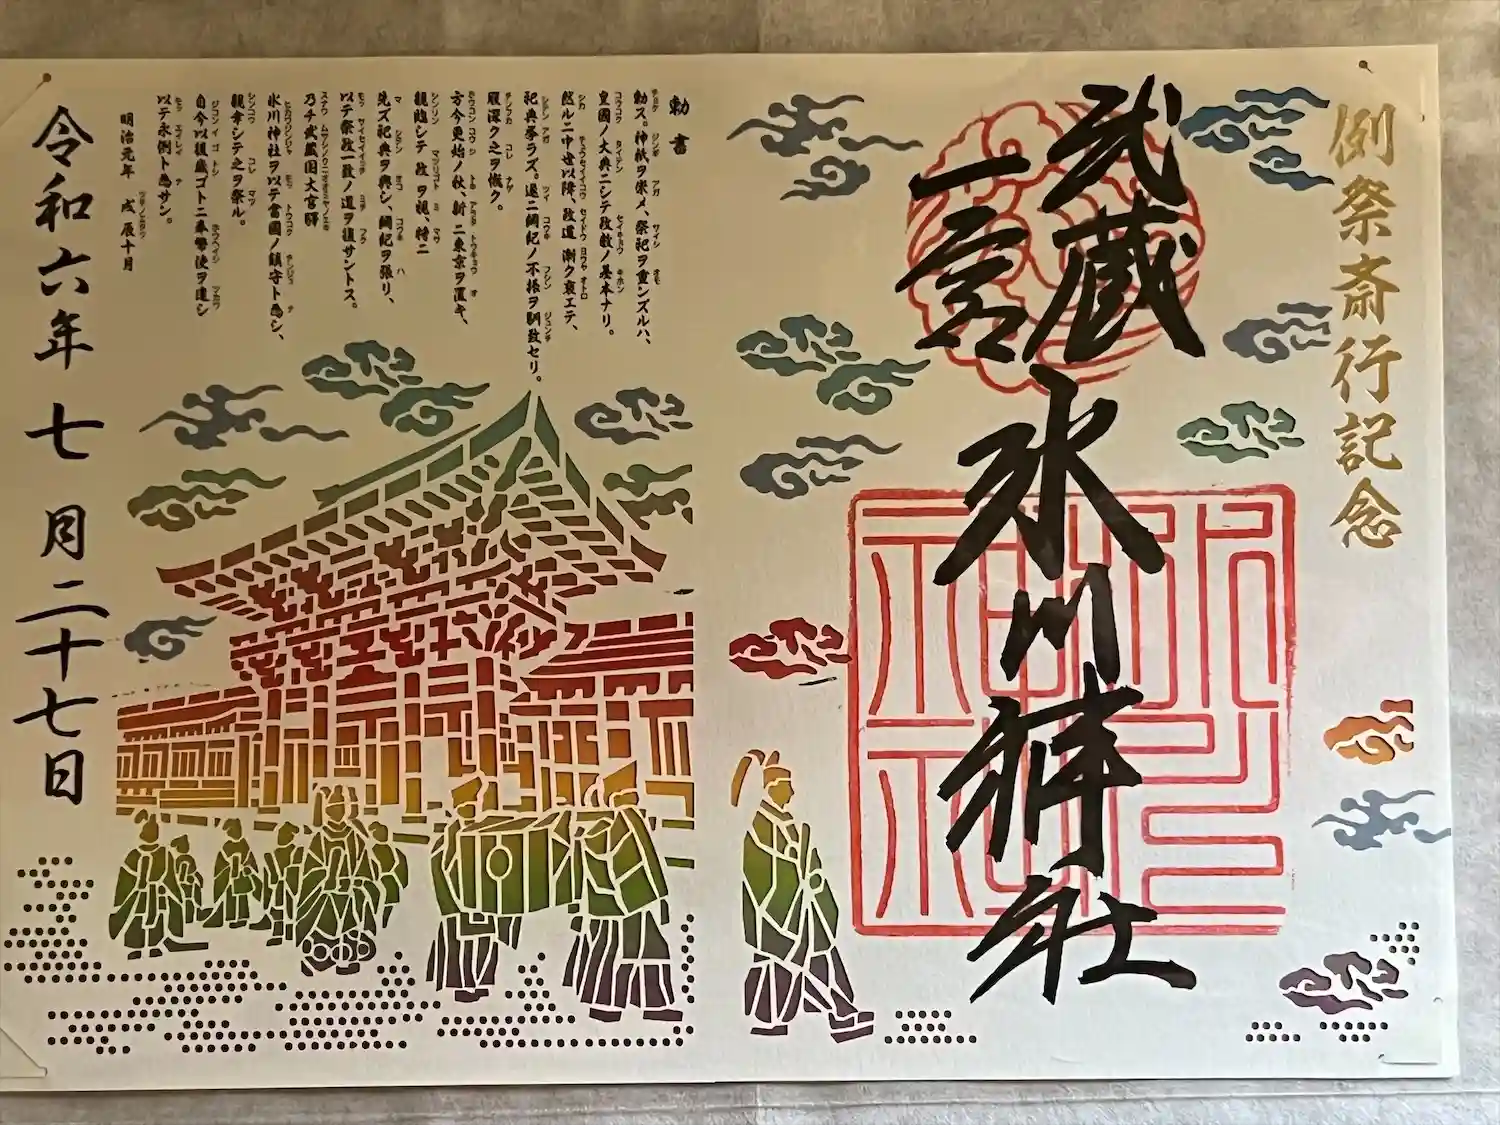 例祭斎行記念
武蔵
一宮
氷川神社
勅書
勅ス。神祇ヲ崇メ、祭祀ヲ重ンズルハ、
皇國ノ大典ニシテ政教ノ基本ナリ。
然ルニ中世以降、政道漸ク衰エテ、
祀典挙ラズ。遂ニ綱紀ノ不振ヲ馴致セリ。
朕深ク之ヲ慨ク。
方今更始ノ秋、新ニ東京ヲ置キ、
親臨シテ政ヲ視、将ニ
先ズ祀典ヲ興シ、綱紀ヲ張リ、
以テ祭政一致ノ道ヲ復サントス。
乃チ武蔵国大宮驛
氷川神社ヲ以テ當國ノ鎮守ト為シ、
親幸シテ之ヲ祭ル。
自今以後歳ゴトニ奉幣使ヲ遣シ
以テ永例ト為サン。
明治元年 戊辰十月
令和六年七月二十七日